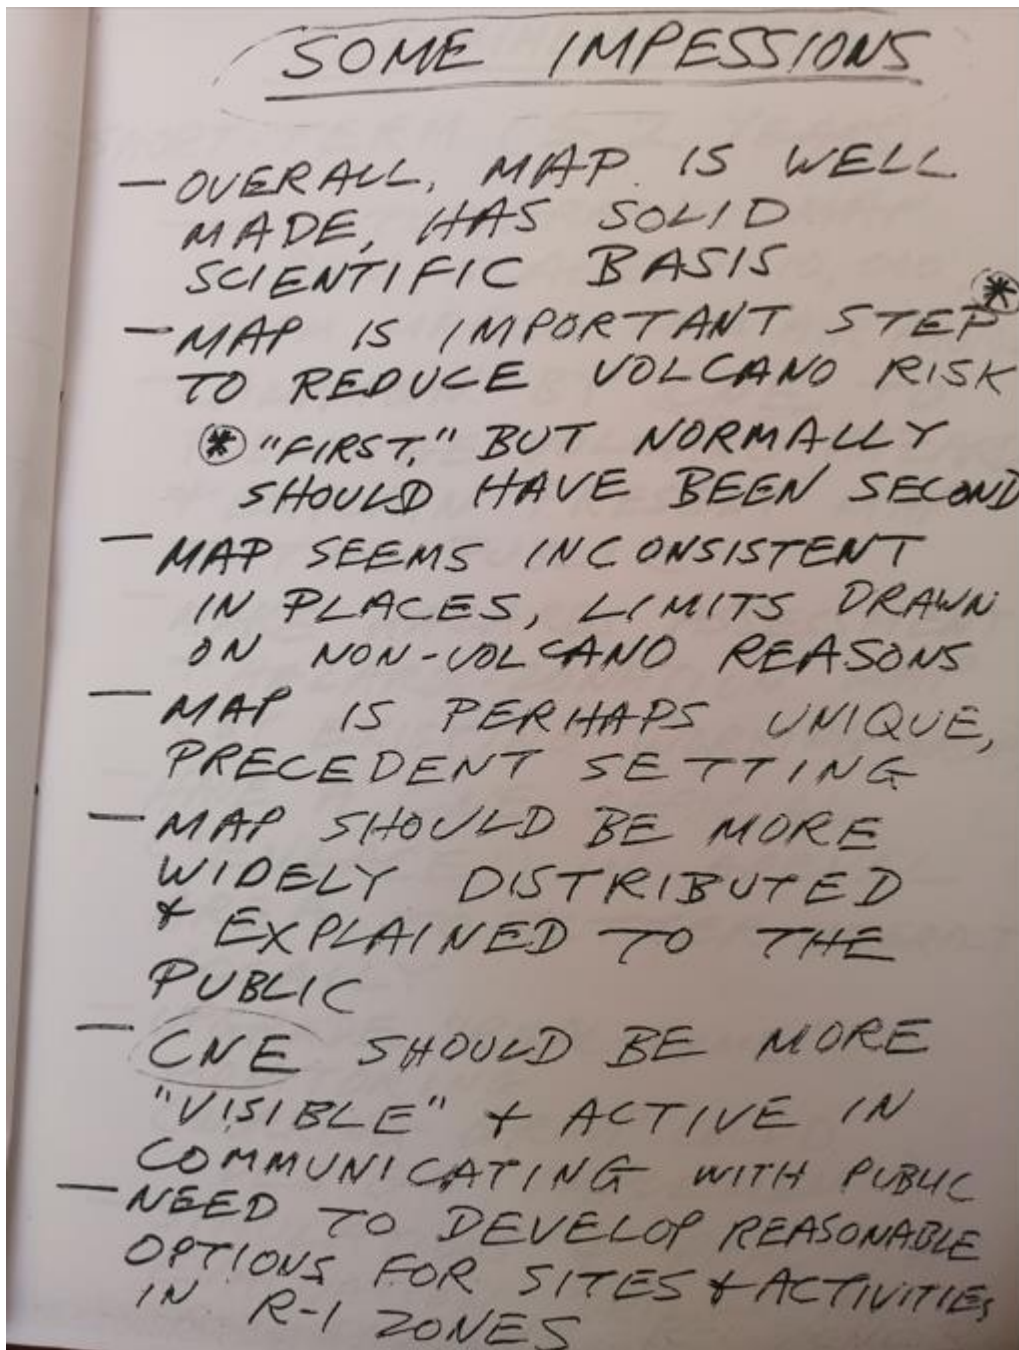 SOME IMPESSIONS
— OVERALL, MAP IS WELL
MADE, HAS SOLID
SCIENTIFIC BASIS
— MAP IS IMPORTANT STEP *
TO REDUCE VOLCANO RISK
* "FIRST," BUT NORMALLY
SHOULD HAVE BEEN SECOND
— MAP SEEMS INCONSISTENT
IN PLACES, LIMITS DRAWN
ON NON-VOLCANO REASONS
— MAP IS PERHAPS UNIQUE,
PRECEDENT SETTING
— MAP SHOULD BE MORE
WIDELY DISTRIBUTED
& EXPLAINED TO THE
PUBLIC
— CNE SHOULD BE MORE
"VISIBLE" & ACTIVE IN
COMMUNICATING WITH PUBLIC
— NEED TO DEVELOP REASONABLE
OPTIONS FOR SITES & ACTIVITIES
IN R-1 ZONES